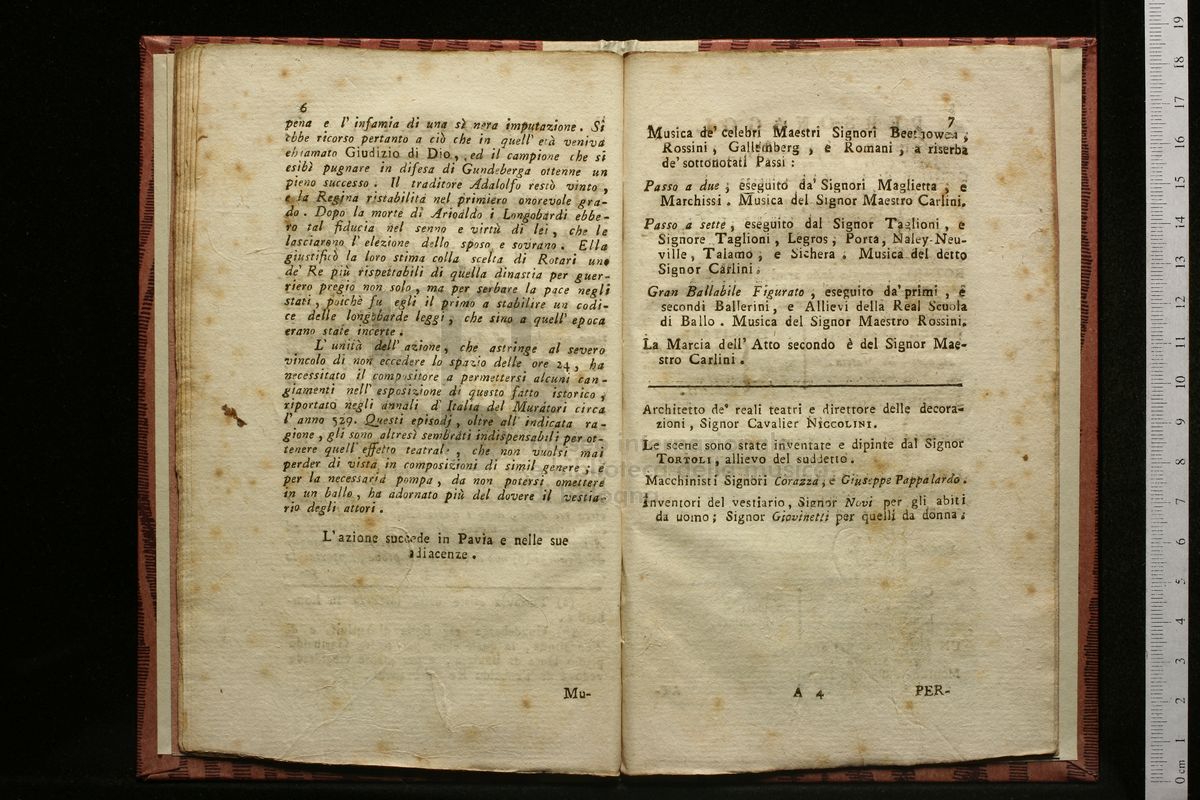 6
pena e l' infamia di una sì nera imputazione . Si
ebbe ricorso pertanto a ciò che in quell' età veniva
chiamato Giudizio di Dio , ed il campione che si
esibì pugnare in difesa di Gundeberga ottenne un
pieno successo . Il traditore Adalolfo restò vinto ,
e la Regina ristabilità nel primiero onorevole gra-
do . Dopo la morte di Arioaldo i Longobardi ebbe-
ro tal fiducia nel senno e virtù di lei , che le
lasciarono l' elezione dello sposo e sovrano . Ella
giustificò la loro stima colla scelta di Rotari uno
de' Re più rispettabili di quella dinastia per guer-
riero pregio non solo , ma per serbare la pace negli
stati , poichè fu egli il primo a stabilire un codi-
ce delle longobarde leggi , che sino a quell' epoca
erano state incerte .
L' unità dell' azione , che astringe al severo
vincolo di non eccedere lo spazio delle ore 24 , ha
necessitato il compositore a permettersi alcuni can-
giamenti nell' esposizione di questo fatto istorico ,
riportato negli annali d' Italia del Muratori circa
l' anno 529. Questi episodj , oltre all' indicata ra-
gione , gli sono altresì sembrati indispensabili per ot-
tenere quell' effetto teatrale , che non vuolsi mai
perder di vista in composizioni di simil genere , e
per la necessaria pompa , da non potersi omettere
in un ballo , ha adornato più del dovere il vestia-
rio degli attori .
L'azione succede in Pavia e nelle sue
adiacenze .
Mu-
7
Musica de' celebri Maestri Signori Beethowen ,
Rossini , Gallemberg , e Romani , a riserba
de' sottonotati Passi :
Passo a due ; eseguito da' Signori Maglietta , e
Marchissi . Musica del Signor Maestro Carlini.
Passo a sette , eseguito dal Signor Taglioni , e
Signore Taglioni , Legros ; Porta , Naley-Neu-
ville , Talamo ; e Sichera . Musica del detto
Signor Carlini .
Gran Ballabile Figurato , eseguito da' primi , e
secondi Ballerini , e Allievi della Real Scuola
di Ballo . Musica del Signor Maestro Rossini.
La Marcia dell' Atto secondo è del Signor Mae-
stro Carlini .
Architetto de' reali teatri e direttore delle decora-
zioni , Signor Cavalier NICCOLINI.
Le scene sono state inventate e dipinte dal Signor
TORTOLI , allievo del suddetto .
Macchinisti Signori Corazza , e Giuseppe Pappalardo .
Inventori del vestiario , Signor Novi per gli abiti
da uomo ; Signor Giovinetti per quelli da donna ;
A 4
PER-
0 cm 1 2 3 4 5 6 7 8 9 10 11 12 13 14 15 16 17 18 19